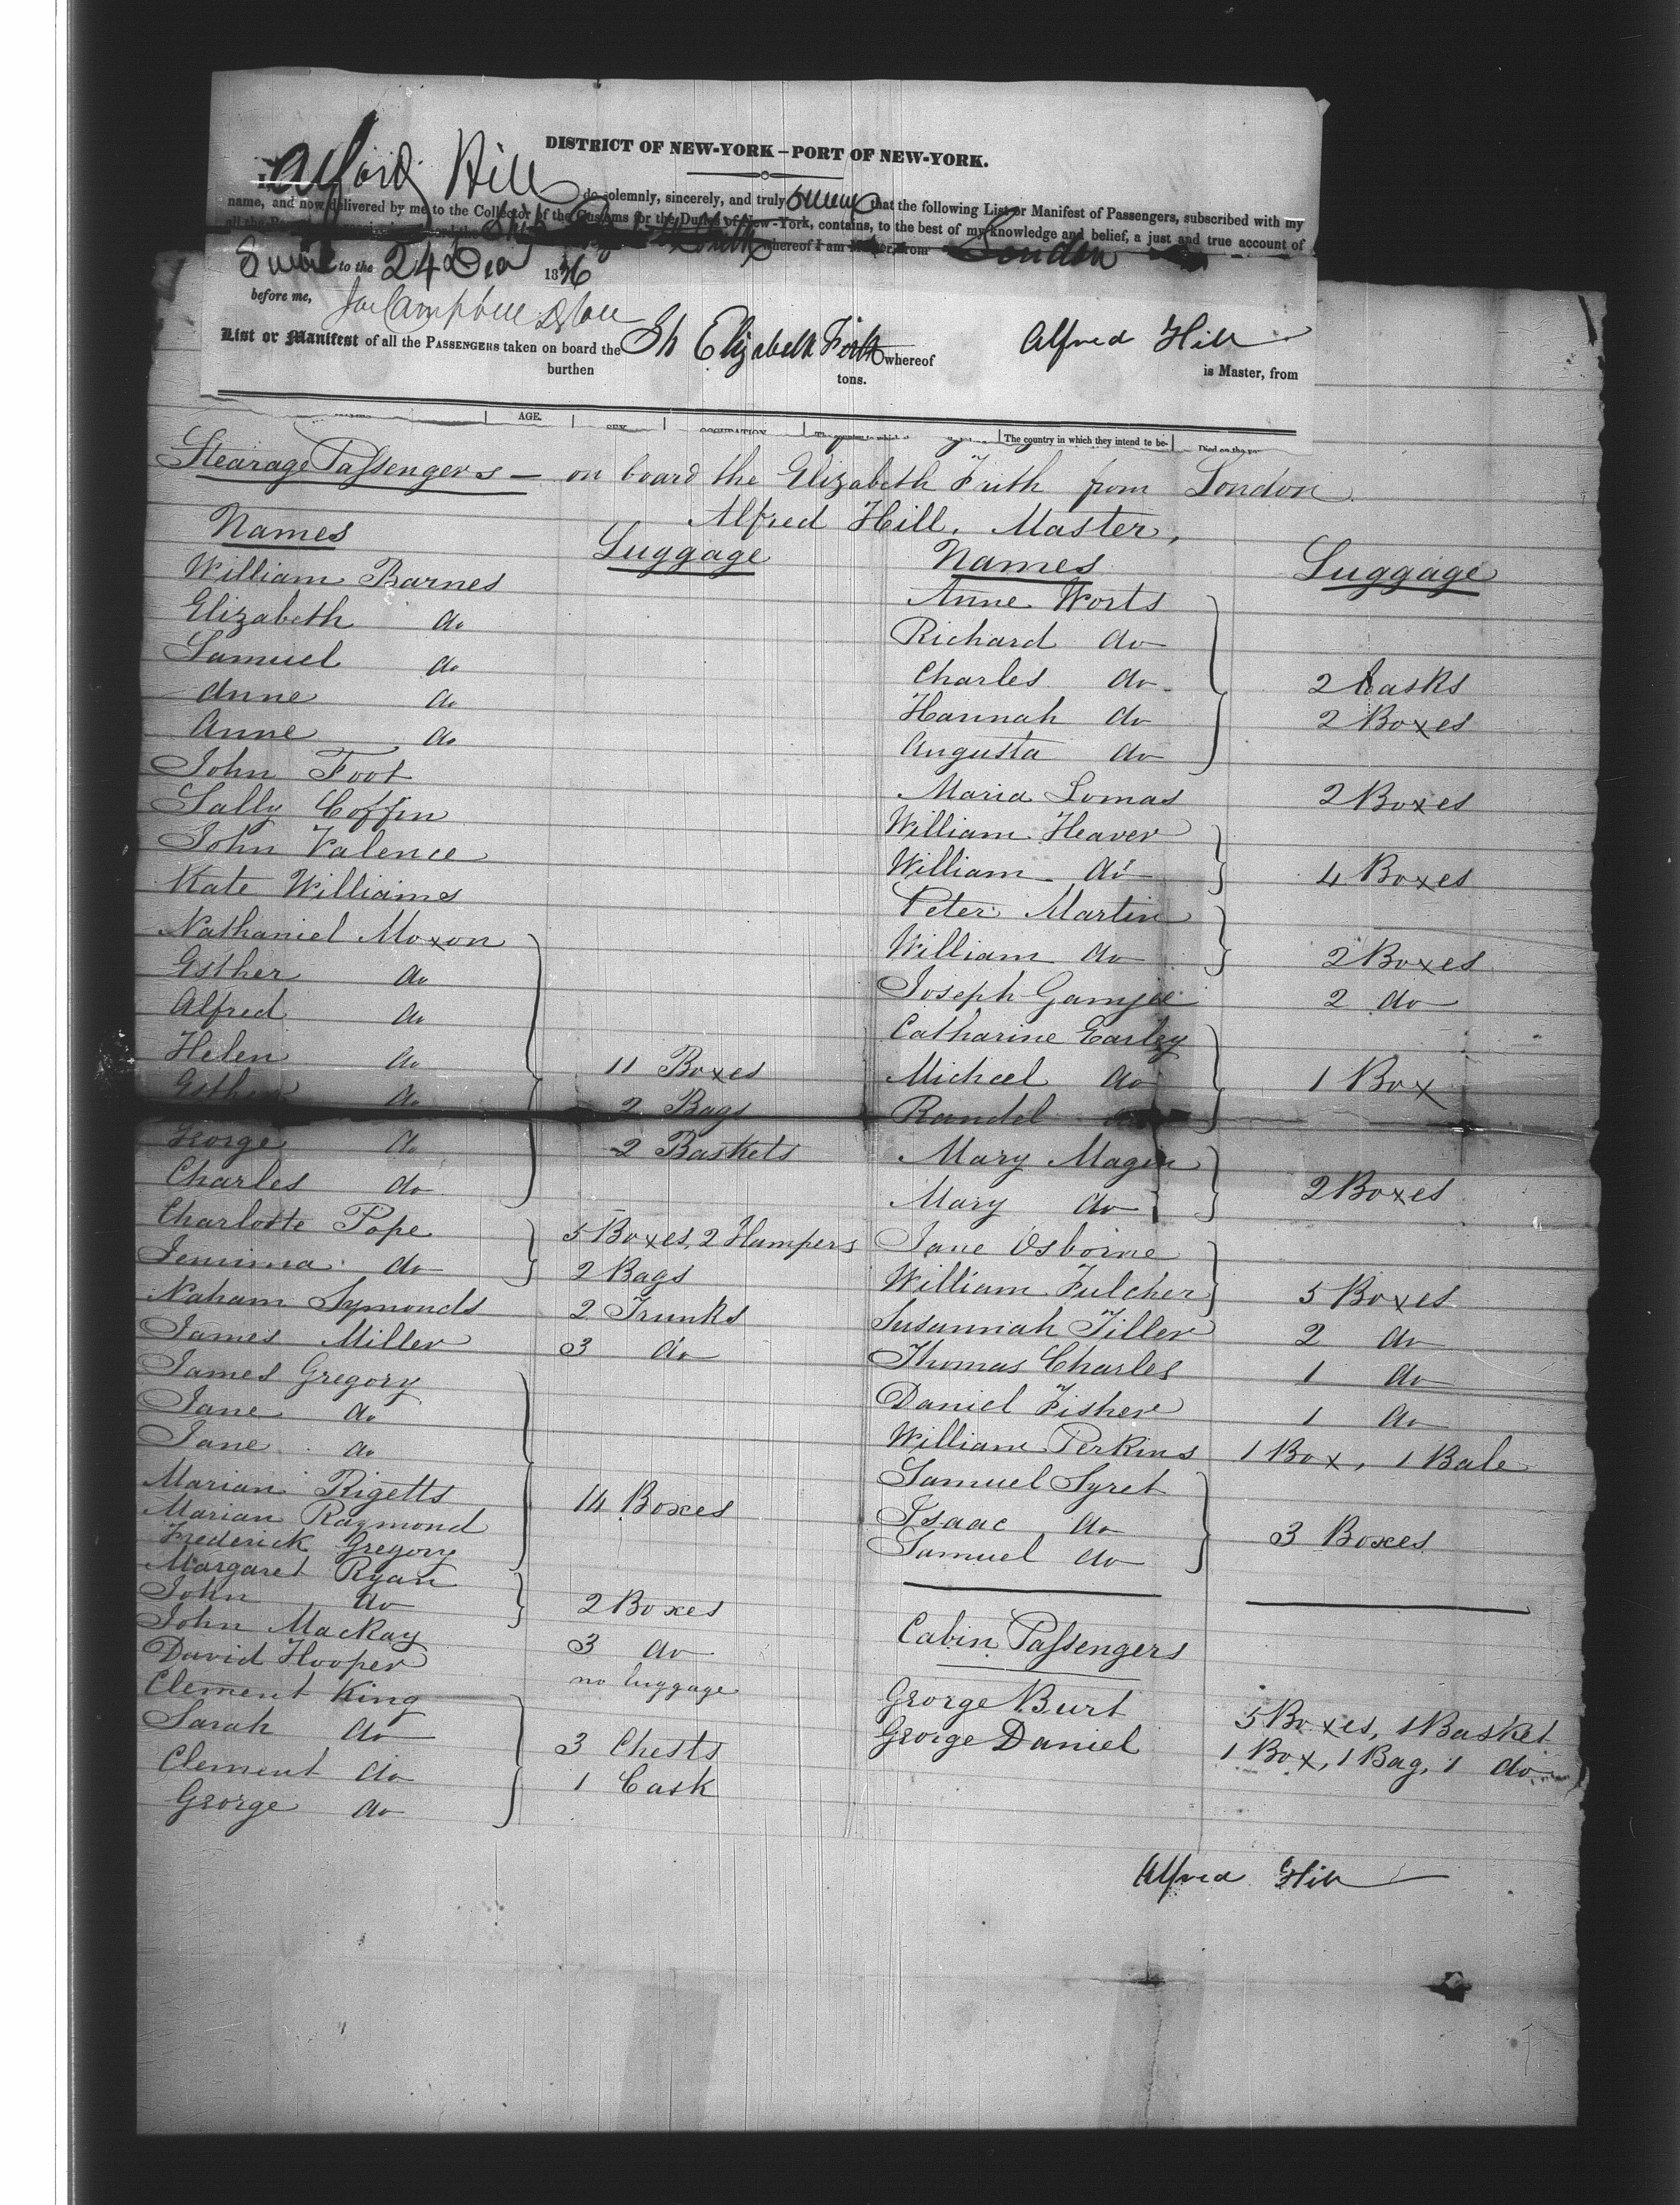 DISTRICT OF NEW-YORK—PORT OF NEW-YORK.
I, Alford Hill do solemnly, sincerely, and truly swear that the following List or Manifest of Passengers, subscribed with my
name, and now delivered by me to the Collector of the Customs for the Duties of New-York, contains, to the best of my knowledge and belief, a just and true account of
all the whereof I am from London
to the 24 Dec 1836
before me, Campbell
List or Manifest of all the PASSENGERS taken on board the Sh Elizabeth Frith whereof Alfred Hill
burthen tons. is Master, from
AGE. SEX. OCCUPATION. The country in which they intend to be-
Stearage Passengers — on board the Elizabeth Frith from London
Alfred Hill, Master,
Names
Luggage
William Barnes
Elizabeth do
Samuel do
Anne do
Anne do
John Foot
Sally Coffin
John Valence
Kate Williams
Nathaniel Moxon
Esther do
Alfred do
Helen do 11 Boxes
Esther do 2 Bags
George do 2 Baskets
Charles do
Charlotte Pope 5 Boxes, 2 Hampers
Jemima do 2 Bags
Naham Symonds 2 Trunks
James Miller 3 do
James Gregory
Jane do
Jane do
Marian Rigetts 14 Boxes
Marian Raymond
Frederick Gregory
Margaret Ryan
John do 2 Boxes
John MacKay 3 do
David Hooper no luggage
Clement King
Sarah do 3 Chests
Clement do 1 Cask
George do
Names
Luggage
Anne Worts
Richard do
Charles do 2 Casks
Hannah do 2 Boxes
Augusta do
Maria Lomas 2 Boxes
William Heaver
William do 4 Boxes
Peter Martin
William do 2 Boxes
Joseph Gamjee 2 do
Catharine Earley
Michael do 1 Box
Randel do
Mary Magin
Mary do 2 Boxes
Jane Osborne
William Fulcher 5 Boxes
Susannah Tiller 2 do
Thomas Charles 1 do
Daniel Fisher 1 do
William Perkins 1 Box, 1 Bale
Samuel Syret
Isaac do 3 Boxes
Samuel do
Cabin Passengers
George Burt 5 Boxes, 1 Basket
George Daniel 1 Box, 1 Bag, 1 do
Alfred Hill